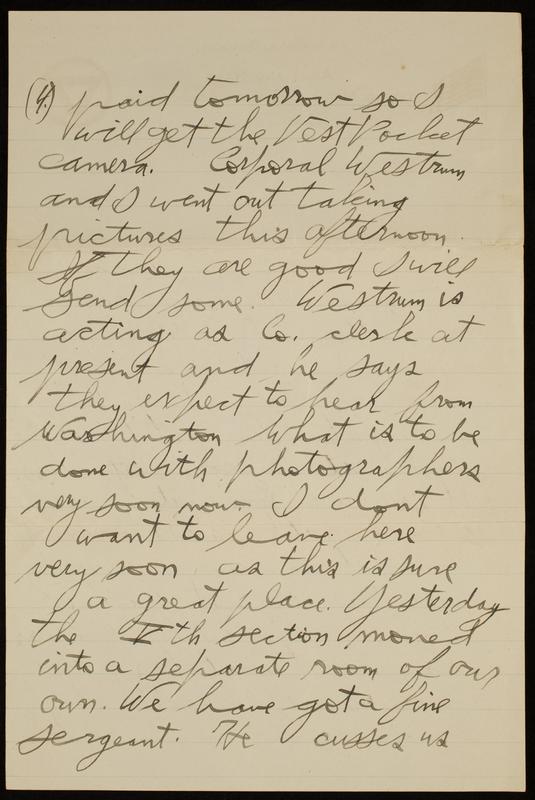 (4.) paid tomorrow so I
will get the Vest Pocket
camera. Corporal Westrum
and I went out taking
pictures this afternoon.
If they are good I will
send some. Westrum is
acting as Co. clerk at
present and he says
they expect to hear from
Washington what is to be
done with photographers
very soon now. I dont
want to leave here
very soon as this is sure
a great place. Yesterday
the Vth section moved
into a separate room of our
own. We have got a fine
sergeant. He cusses us